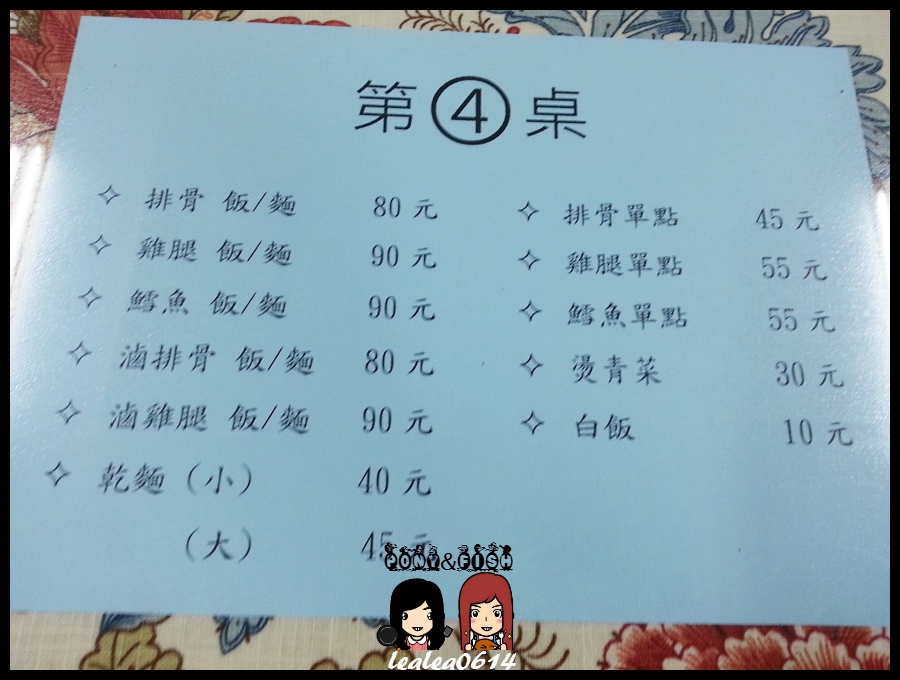 第④桌
✧ 排骨 飯/麵 80 元
✧ 雞腿 飯/麵 90 元
✧ 鱈魚 飯/麵 90 元
✧ 滷排骨 飯/麵 80 元
✧ 滷雞腿 飯/麵 90 元
✧ 乾麵(小) 40 元
(大) 45 元
✧ 排骨單點 45 元
✧ 雞腿單點 55 元
✧ 鱈魚單點 55 元
✧ 燙青菜 30 元
✧ 白飯 10 元
PONY&FISH
lealea0614